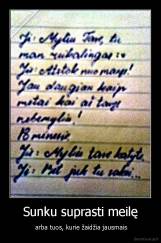 Ji: Myliu Tave, tu
man reikalingas :*
Jis: Atstok nuo manęs!
Jau daugiau kaip
metai kai aš tavęs
nebemyliu!
Ji:
Jis: Myliu tave katyte.
Ji: Bet juk tu sakei...
Sunku suprasti meilę
arba tuos, kurie žaidžia jausmais